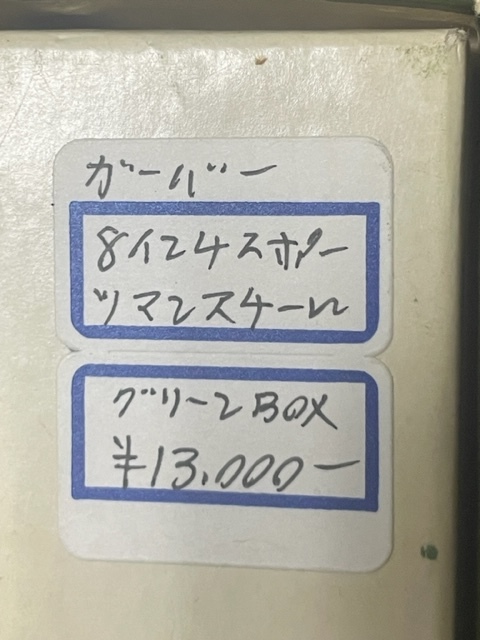 ガーバー
8124スポー
ツマンスケール
グリーンBOX
¥13.000-